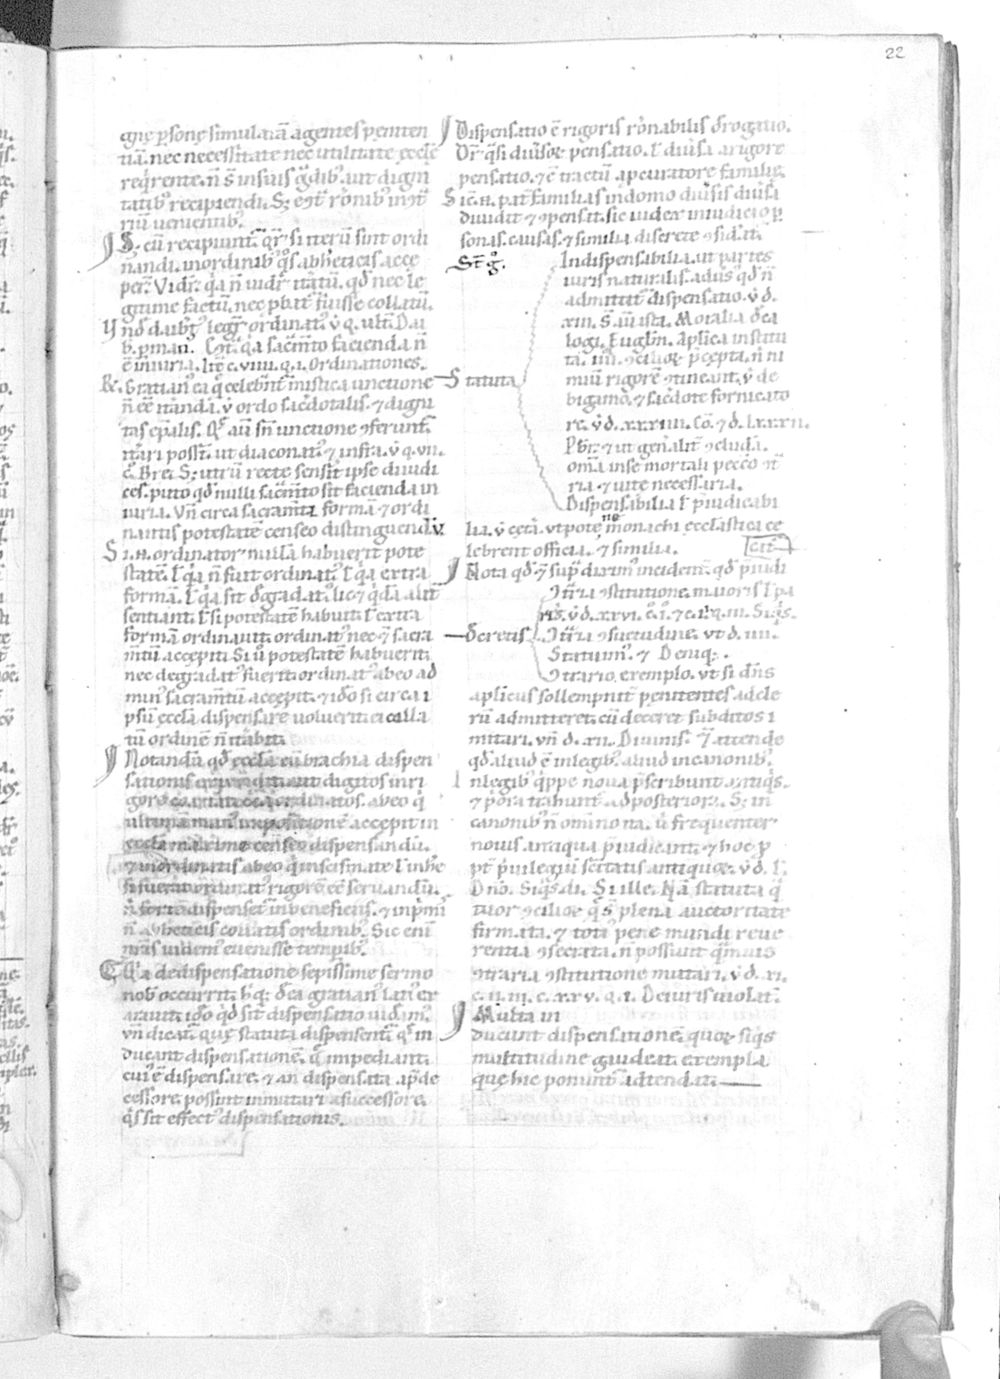 22
gnę ꝑsonę simulatiã agentes peniten
tiã. nec necessitate nec utilitate eccłe
reqͥrente. ñ s̃ in suis gͣdibꝰ ut digni
tatibꝰ recipiendi. S;
riũ uenientibꝰ.
S. cũ recipiunt. q̃r si iterũ sint ordi
nandi. in ordinibꝰ qͦs ab heticis acce
per̃. Vidr̃. qͥa ñ uidr̃ itãtũ. qđ nec le
gitime factũ. nec ꝓbat̃ fuisse collatũ.
b. ꝑ man. qͥa sac̃mto facienda ñ
ẽ iniuria. c. viiii. q. i. Ordinationes.
R. Gratianꝰ ea q̃ celebrñt mistica unctione
ñ eẽ itãndã. ordo sac̃dotalis. ⁊ digni
tas ep̃alis. aũ sñ unctione ꝯferunt̃.
itãri poss̃t. ut diaconatꝰ. ⁊ infra. q. vii.
c. Brei. S; utrũ recte sens̃it ipse diiudi
ces. puto qđ nulli sac̃mto sit facienda in
iuria. Vñ circa sacram̃ta formã ⁊ ordi
nantis potestatẽ censeo distinguendũ.
Si .n. ordinator nullã habuerit pote
statẽ. ł qͥa ñ fuit ordinatꝰ. ł qͥa extra
formã. ł qͥa sit degͣdatꝰ. lic; ⁊ qͥdã alit̃
sentiant. ł si potestatẽ habuit. ł extra
formã ordinauit. ordinatꝰ nec sacra
m̃tũ accepit. Si u̾o potestatẽ habuerit.
nec degradatꝰ fuerit ordinatꝰ ab eo ad
minꝰ sacram̃tũ accepit. ⁊ iđo si circa i
psũ eccłia dispensare uoluerit ei colla
tũ ordinẽ ñ itãbit.
Notandũ qđ eccłia cũ brachia dispen
sationis digitos in ri
gorẽ ordinatos. ab eo q̇
ultimã manꝰ impositionẽ accepit in
eccłia censeo dispensandũ.
⁊ in ordinatis ab eo qͥ in scismate ł in hẽ
si fuerat ordinatꝰ rigorẽ eẽ seruandũ.
ñ dispenset̃ in beneficiis. ⁊ inpͥmꝰ
ñ ab heticis collatis ordinibꝰ. Sic eni
nr̃is uidemꝰ euenisse tempibꝰ.
Qͥa de dispensatione sepissime sermo
nobꝰ occurrit. gratianꝰ latiꝰ ex
arauit. iđo qͥd sit dispensatio uideamꝰ.
vñ dicat̃. quę statuta dispensent̃. qͥ in
ducant dispensationẽ. q̃ impediant.
cui ẽ dispensare. ⁊ an dispensata a p̃de
cessore possint inmutari a successore.
qͥs sit effectꝰ dispensationis.
Dispensatio ẽ rigoris rõnabilis derogatio.
Dr̃ qͣsi diuisoꝝ pensatio. ł diuisa a rigore
pensatio. ⁊ ẽ tractũ a ꝓcuratore familie.
Sic .n. pat̃ familias in domo diuisis diuisa
diuidit ⁊ ꝯpensat. sic iudex in iudicio ꝑ
sonas. causas. ⁊ similia discrete ꝯsid̾at.
St̃ g̊.
Indispensabilia. ut partes
iuris naturalis. aduersꝰ qđ ñ
admittit̃ dispensatio. ỽ. d.
xiii. S̃. aũ ista. Moralia deca
logi. Euglm̃. Aplica institu
ta. iiii. ꝯcilioꝝ p̃cepta. ñ ni
miũ rigorẽ ꝯtineant. ỽ de
bigamo. ⁊ sac̃dote fornicato
re. ỽ d. xxxiiii. Co. ⁊ d. lxxxii.
Pbr̃. ⁊ ut gen̾alit̃ ꝯcludã.
omĩa in se mortali pecc̃o ꝯt̃
ria ⁊ uite necessaria.
Statuta
Dispensabilia ł p̃iudicabi
lia. ỽ cet̾a. ut pote ne monachi ecclastica ce
lebrent officia. ⁊ similia.
Nota qđ supͣ diximꝰ incidenti. qđ p̃iudi
cat̃
decretis
ꝯt̃ria ꝯstitutione. maioris ł pa
ris. ỽ d. xxvi. iii. Siqͥs.
ꝯt̃ria ꝯsuetudine. ut d. iiii.
Statuimꝰ. ⁊ Deniq;.
ꝯtrario exemplo. ut si dñs
aplicus sollempnit̃ penitentes ad cle
rũ admitteret. cũ deceret subditos i
mitari. vñ d. xii. Diuinis. attende
qđ aliud ẽ in legibꝰ. aliud in canonibꝰ.
In legibꝰ qͥppe noua p̃scribunt̃ antiqͥs.
⁊ pͥora trahunt̃ ad posteriora. S; in
canonibꝰ ñ omĩno ita. u̾ frequenter
nouis antiqua p̃iudicant. ⁊ hoc ꝓ
pt̾ p̃uilegiũ sc̃itatis antiquoꝝ. ỽ d. l.
Dño. Si ille. Nã statuta q̃
tuor ꝯcilioꝝ qͥ s̃ plena auctoritate
firmata. ⁊ toti pene mundi reue
rentia ꝯsecrata. ñ possunt qͣmuis
ꝯtraria ꝯstitutione mutari. ỽ d. xi.
c. xxv. q. i. De iuris uiolat.
Multa in
ducunt dispensationẽ. quoꝝ siqͥs
multitudine gaudeat exempla
quę hic ponunt̃ adtendat.